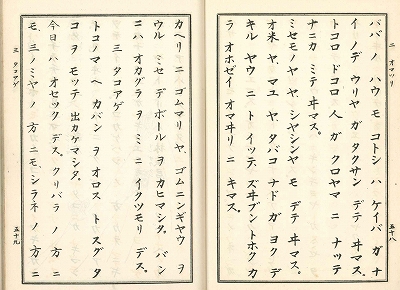 二 オマツリ
ババ ノ ハウ モ コトシ ハ ケイバ ガ ナ
イ ノデ ウリヤ ガ タクサン デテ ヰマス。
トコロ ドコロ 人 ガ クロヤマ ニ ナッテ
ナニカ ミテ ヰマス。
ミセモノ ヤ、シヤシンヤ モ デテ ヰマス。
オ米 ヤ、マユ ヤ、タバコ ナド ガ ヨク デ
キル ヤウ ニ ト イッテ、ズヰブン トホク カ
ラ オホゼイ オマヰリ ニ キマス。
五十八
カヘリ ニ ゴムマリ ヤ、ゴムニンギヤウ ヲ
ウル ミセ デ ボール ヲ カヒマシタ。 バン
ニハ オカグラ ヲ ミ ニ イクツモリ デス。
三 タコアゲ
トコノマ ヘ カバン ヲ オロス ト スグ タ
コ ヲ モッテ 出カケマシタ。
今日 ハ オセック デス。クリバラ ノ 方 ニ
モ、三ノミヤ ノ 方 ニモ、シラネ ノ 方 ニ
三 タコアゲ
五十九